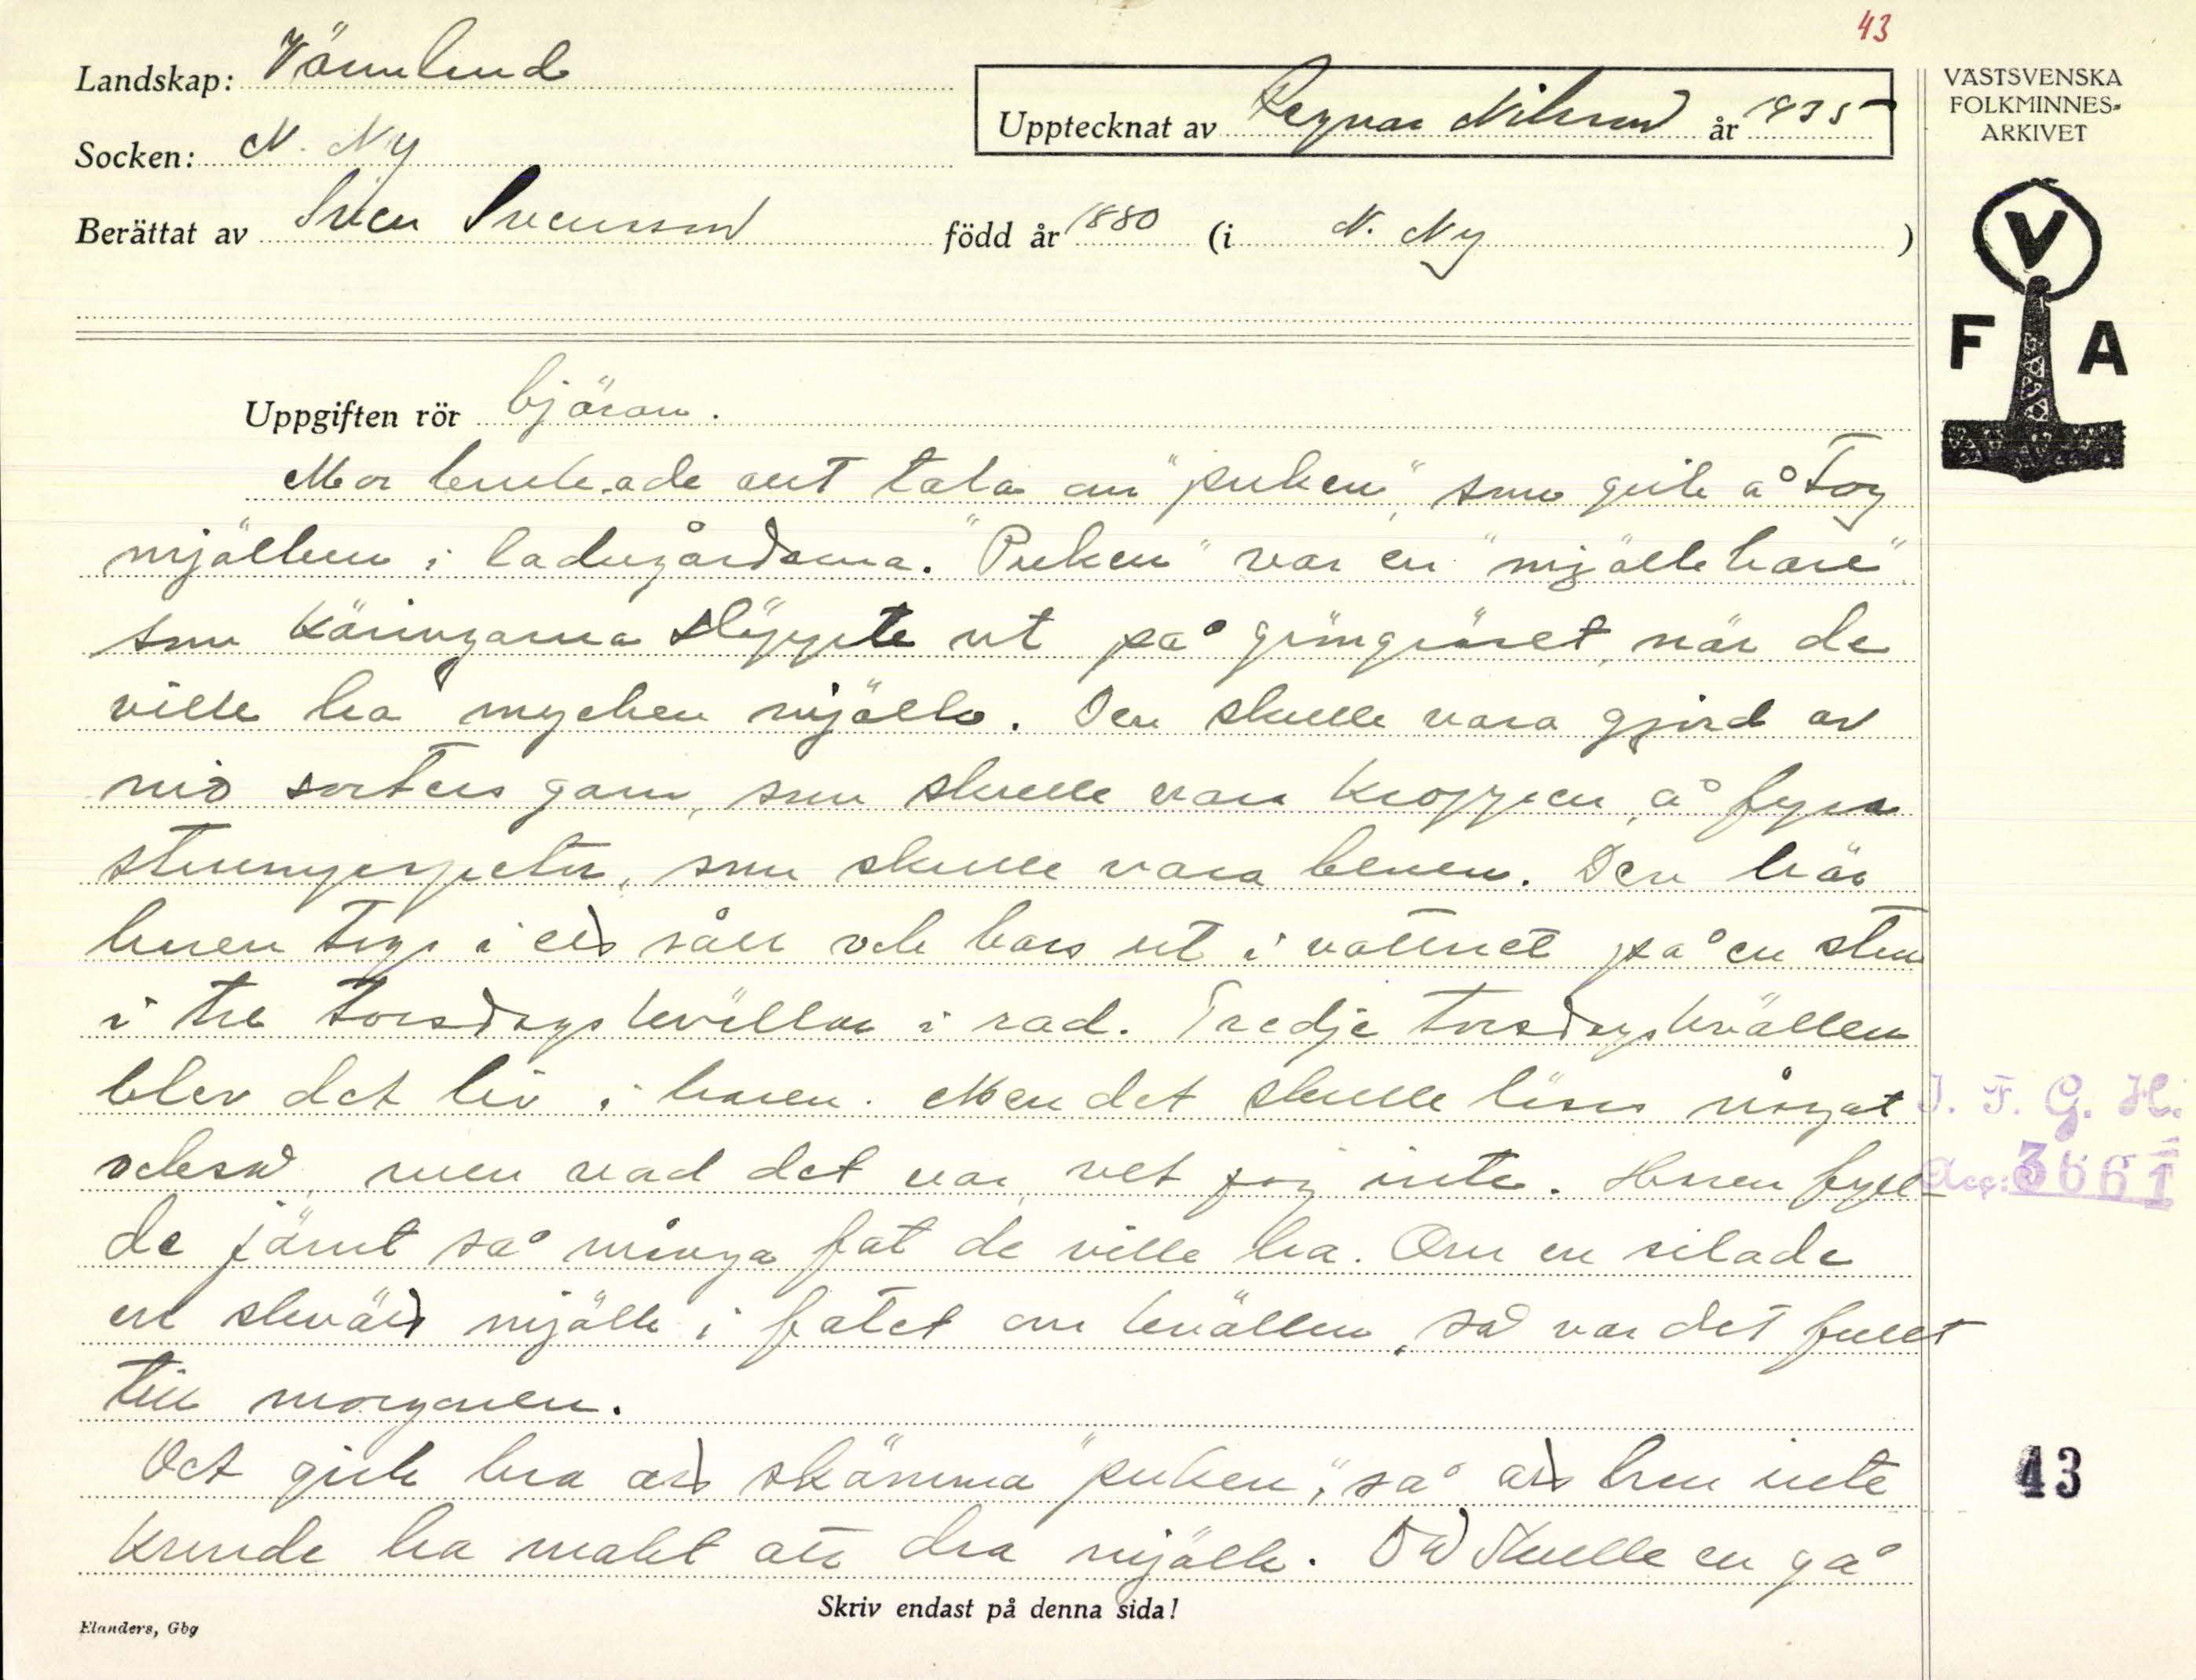 43
Landskap: Värmland
Upptecknat av Ragnar Nilsson år 1935
VÄSTSVENSKA
FOLKMINNES-
ARKIVET
Socken: N. Ny
Berättat av Sven Svensson född år 1880 (i N. Ny )
V
F A
Uppgiften rör bjäran.
Mor brukade att tala om "puken", som gick å tog
mjölken i ladugårdarna. "Puken" var en "mjölkhare"
som käringarna släppte ut på gröngräset, när de
ville ha mycken mjölk. Den skulle vara gjord av
nio sorters garn, som skulle vara kroppen, å fyra
strumpespetor, som skulle vara benen. Den här
haren togs i ett såll och bars ut i vattnet på en sten
i tre torsdagskvällar i rad. Tredje torsdagskvällen
blev det liv i haren. Men det skulle läsas något
också, men vad det var, vet jag inte. Haren fyll-
de jämt så många fat de ville ha. Om en silade
en skvätt mjölk i fatet om kvällen, så var det fullt
till morgonen.
Det gick bra att skämma "puken", så att han inte
kunde ha makt att dra mjölk. Då skulle en gå
I. F. G. H.
Acc: 3661
43
Skriv endast på denna sida!
Elanders, Gbg